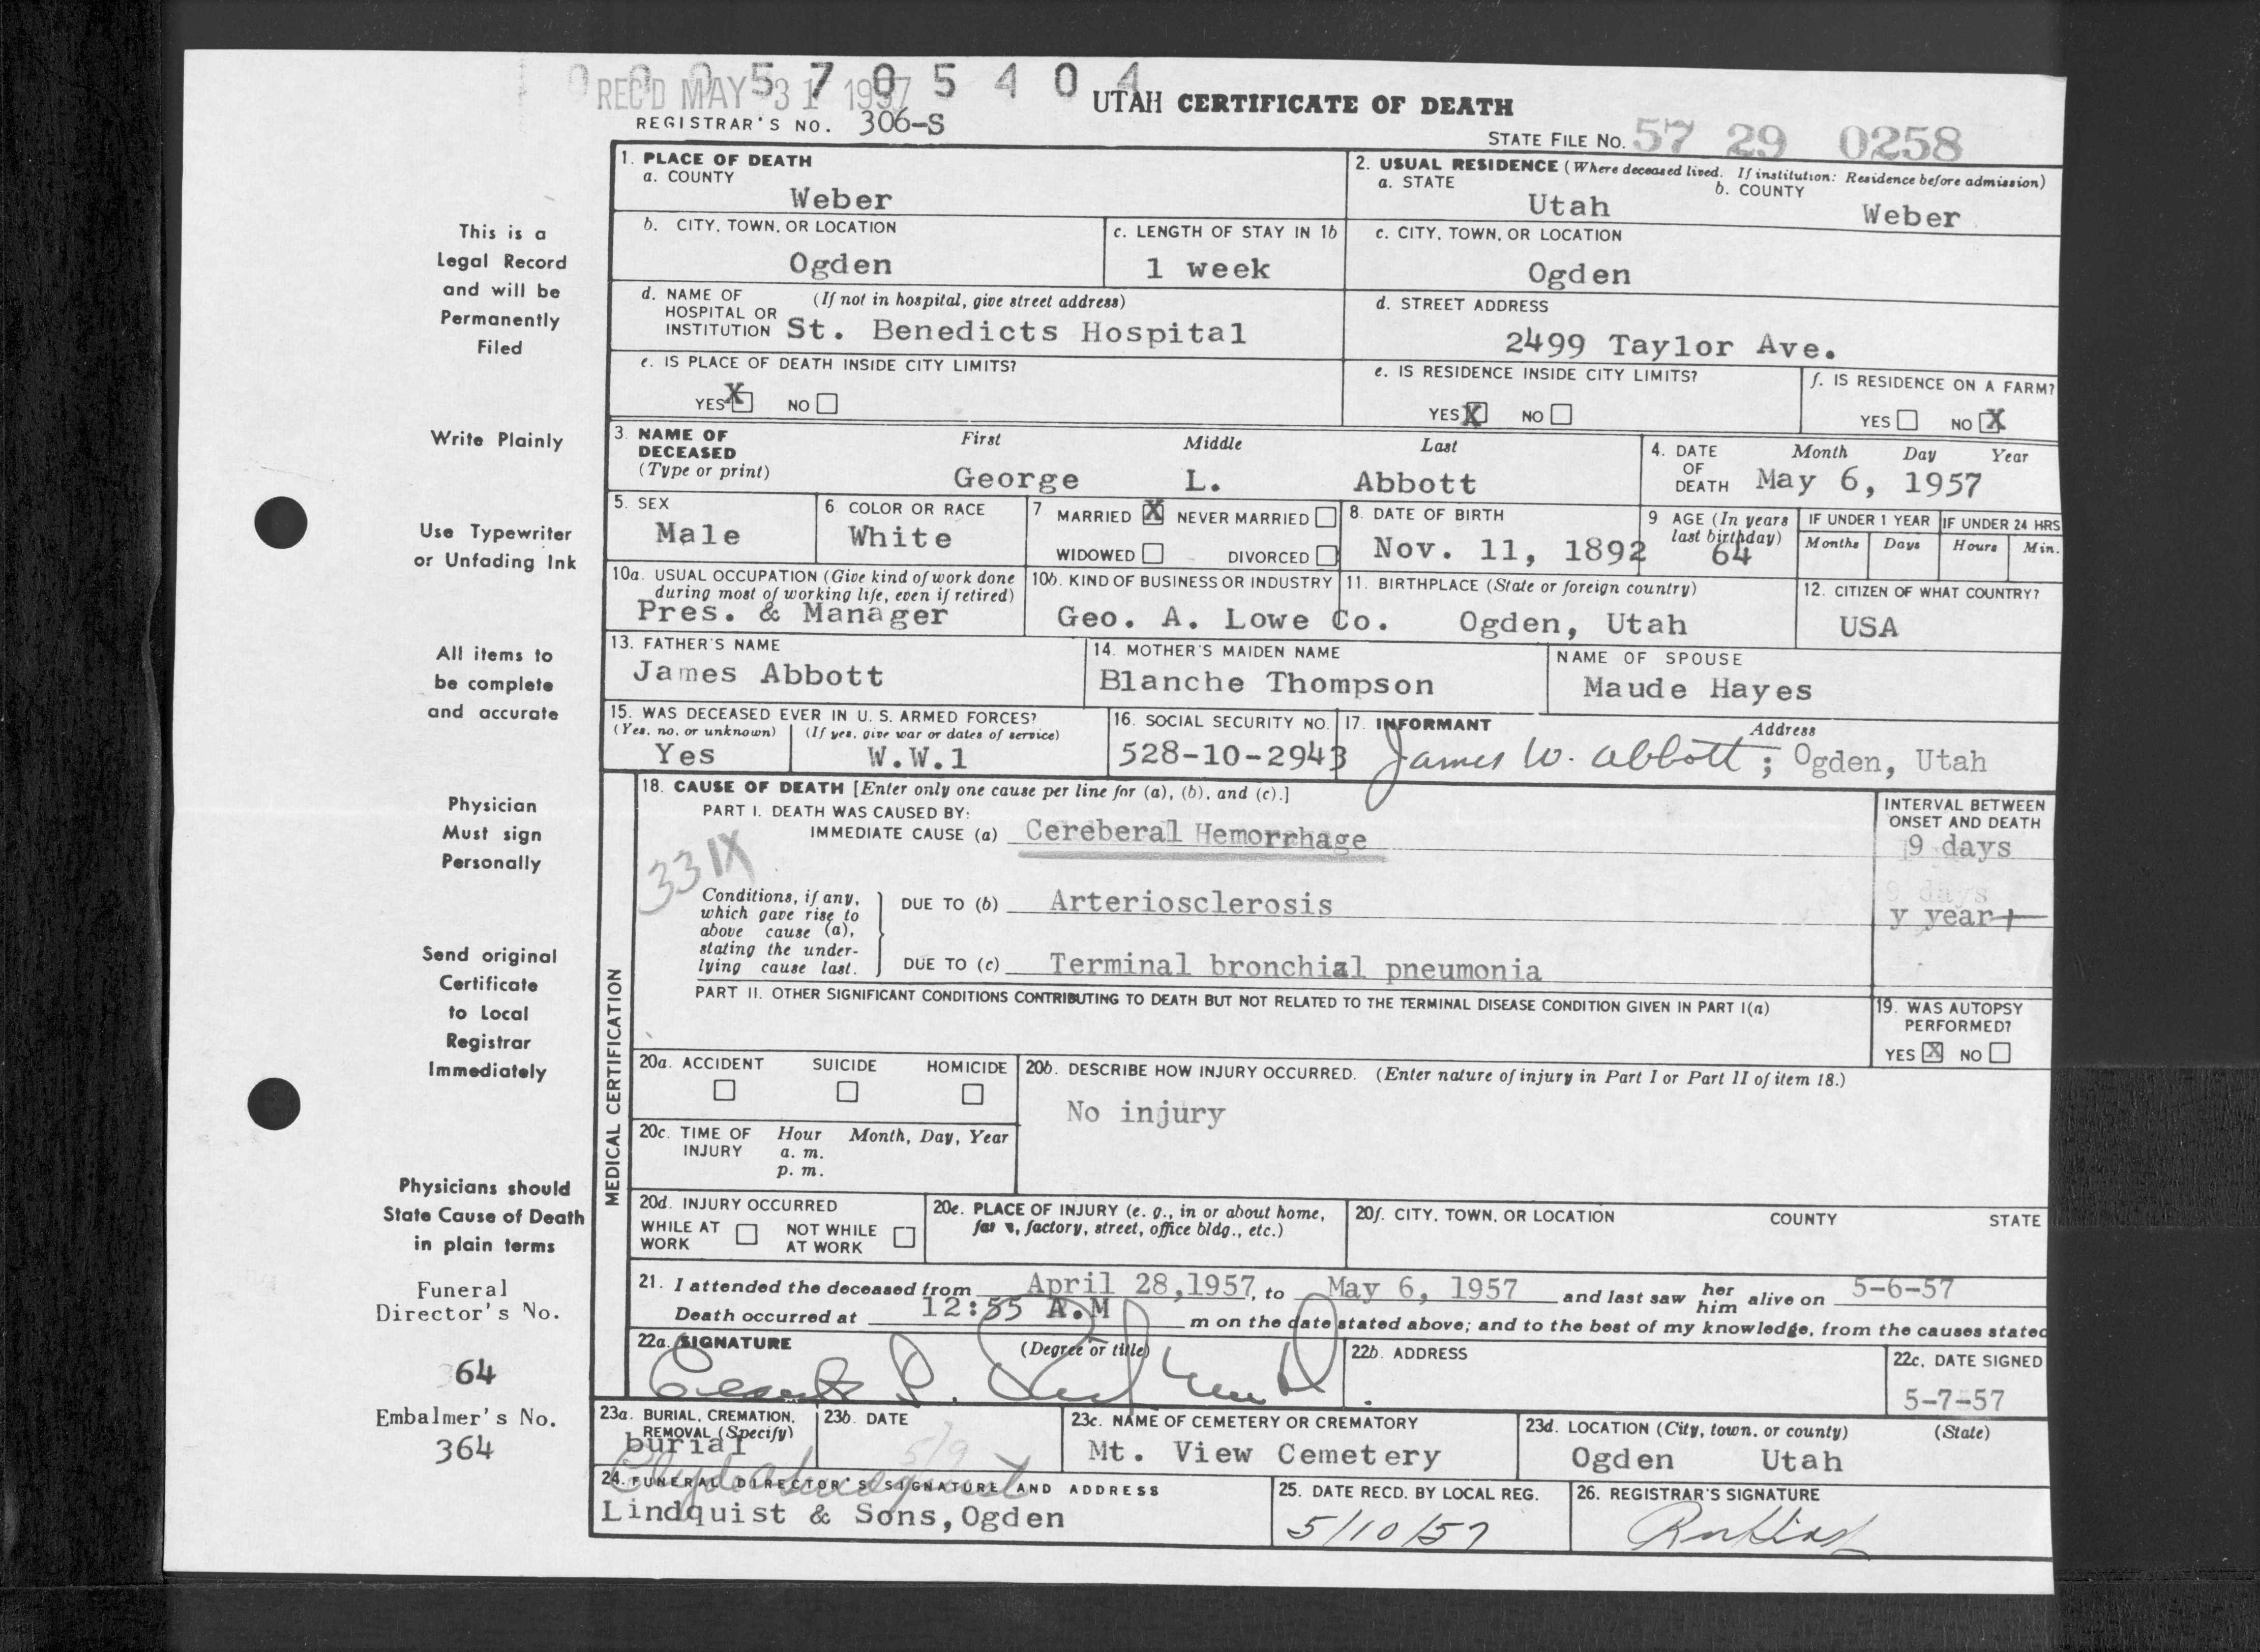 0005705404
REC'D MAY 31 1957
UTAH CERTIFICATE OF DEATH
REGISTRAR'S NO. 306-S
STATE FILE NO. 57 29 0258
This is a
Legal Record
and will be
Permanently
Filed
Write Plainly
Use Typewriter
or Unfading Ink
All items to
be complete
and accurate
Physician
Must sign
Personally
Send original
Certificate
to Local
Registrar
Immediately
Physicians should
State Cause of Death
in plain terms
Funeral
Director's No.
64
Embalmer's No.
364
1. PLACE OF DEATH
a. COUNTY
Weber
2. USUAL RESIDENCE (Where deceased lived. If institution: Residence before admission)
a. STATE
Utah
b. COUNTY
Weber
b. CITY, TOWN, OR LOCATION
Ogden
c. LENGTH OF STAY IN 1b
1 week
c. CITY, TOWN, OR LOCATION
Ogden
d. NAME OF (If not in hospital, give street address)
HOSPITAL OR
INSTITUTION St. Benedicts Hospital
d. STREET ADDRESS
2499 Taylor Ave.
e. IS PLACE OF DEATH INSIDE CITY LIMITS?
YES X NO
e. IS RESIDENCE INSIDE CITY LIMITS?
YES X NO
f. IS RESIDENCE ON A FARM?
YES NO X
3. NAME OF
DECEASED
(Type or print)
First Middle Last
George L. Abbott
4. DATE
OF
DEATH
Month Day Year
May 6, 1957
5. SEX
Male
6. COLOR OR RACE
White
7. MARRIED X NEVER MARRIED
WIDOWED DIVORCED
8. DATE OF BIRTH
Nov. 11, 1892
9 AGE (In years
last birthday)
64
IF UNDER 1 YEAR
Months Days
IF UNDER 24 HRS
Hours Min.
10a. USUAL OCCUPATION (Give kind of work done
during most of working life, even if retired)
Pres. & Manager
10b. KIND OF BUSINESS OR INDUSTRY
Geo. A. Lowe Co.
11. BIRTHPLACE (State or foreign country)
Ogden, Utah
12. CITIZEN OF WHAT COUNTRY?
USA
13. FATHER'S NAME
James Abbott
14. MOTHER'S MAIDEN NAME
Blanche Thompson
NAME OF SPOUSE
Maude Hayes
15. WAS DECEASED EVER IN U. S. ARMED FORCES?
(Yes, no, or unknown) (If yes, give war or dates of service)
Yes W.W.1
16. SOCIAL SECURITY NO.
528-10-2943
17. INFORMANT Address
James W. Abbott; Ogden, Utah
MEDICAL CERTIFICATION
18. CAUSE OF DEATH [Enter only one cause per line for (a), (b), and (c).]
PART I. DEATH WAS CAUSED BY:
IMMEDIATE CAUSE (a) Cereberal Hemorrhage
INTERVAL BETWEEN
ONSET AND DEATH
9 days
331X
Conditions, if any,
which gave rise to
above cause (a),
stating the under-
lying cause last.
DUE TO (b) Arteriosclerosis
9 days
y year+
DUE TO (c) Terminal bronchial pneumonia
PART II. OTHER SIGNIFICANT CONDITIONS CONTRIBUTING TO DEATH BUT NOT RELATED TO THE TERMINAL DISEASE CONDITION GIVEN IN PART I(a)
19. WAS AUTOPSY
PERFORMED?
YES X NO
20a. ACCIDENT SUICIDE HOMICIDE
20b. DESCRIBE HOW INJURY OCCURRED. (Enter nature of injury in Part I or Part II of item 18.)
No injury
20c. TIME OF Hour Month, Day, Year
INJURY a. m.
p. m.
20d. INJURY OCCURRED
WHILE AT NOT WHILE
WORK AT WORK
20e. PLACE OF INJURY (e. g., in or about home,
farm, factory, street, office bldg., etc.)
20f. CITY, TOWN, OR LOCATION COUNTY STATE
21. I attended the deceased from April 28,1957, to May 6, 1957 and last saw her him alive on 5-6-57
Death occurred at 12:55 A.M m on the date stated above; and to the best of my knowledge, from the causes stated
22a. SIGNATURE (Degree or title)
22b. ADDRESS
22c. DATE SIGNED
5-7-57
23a. BURIAL, CREMATION,
REMOVAL (Specify)
burial
23b. DATE
5/9
23c. NAME OF CEMETERY OR CREMATORY
Mt. View Cemetery
23d. LOCATION (City, town, or county) (State)
Ogden Utah
24. FUNERAL DIRECTOR'S SIGNATURE AND ADDRESS
Lindquist & Sons, Ogden
25. DATE RECD. BY LOCAL REG.
5/10/57
26. REGISTRAR'S SIGNATURE